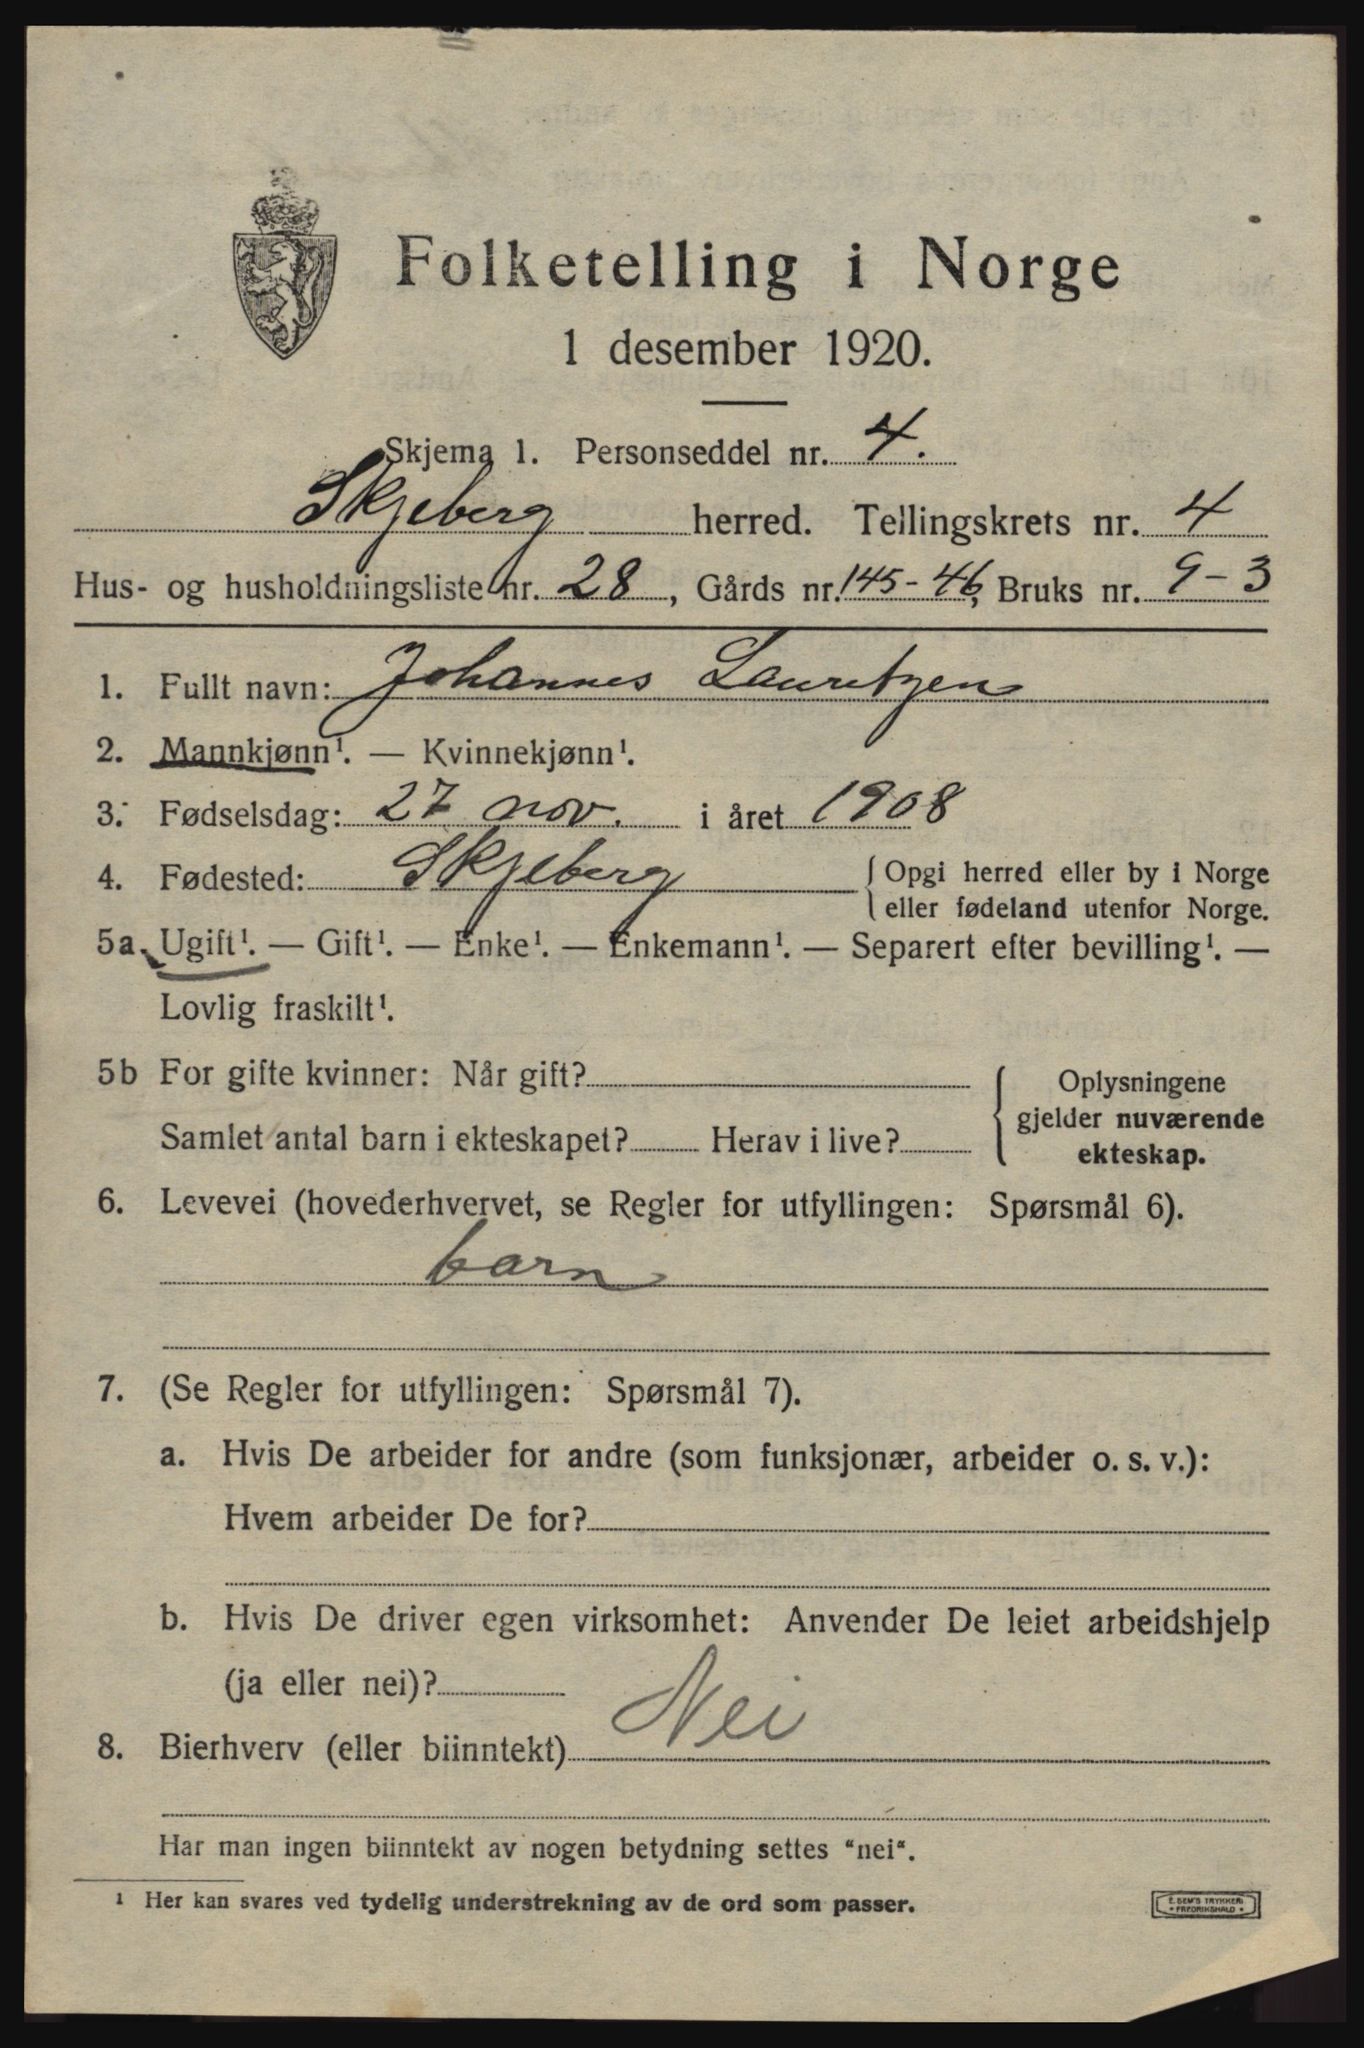 Folketelling i Norge
1 desember 1920.
Skjema 1. Personseddel nr. 4.
Skjeberg herred. Tellingskrets nr. 4
Hus- og husholdningsliste nr. 28, Gårds nr. 145-46, Bruks nr. 9-3
1. Fullt navn: Johannes Lauritzen
2. Mannkjønn¹. — Kvinnekjønn¹.
3. Fødselsdag: 27 nov. i året 1908
4. Fødested: Skjeberg { Opgi herred eller by i Norge
eller fødeland utenfor Norge.
5a Ugift¹. — Gift¹. — Enke¹. — Enkemann¹. — Separert efter bevilling¹. —
Lovlig fraskilt¹.
5b For gifte kvinner: Når gift? { Oplysningene
gjelder nuværende
Samlet antal barn i ekteskapet? Herav i live? ekteskap.
6. Levevei (hovederhvervet, se Regler for utfyllingen: Spørsmål 6).
barn
7. (Se Regler for utfyllingen: Spørsmål 7).
a. Hvis De arbeider for andre (som funksjonær, arbeider o. s. v.):
Hvem arbeider De for?
b. Hvis De driver egen virksomhet: Anvender De leiet arbeidshjelp
(ja eller nei)?
8. Bierhverv (eller biinntekt) Nei
Har man ingen biinntekt av nogen betydning settes "nei".
¹ Her kan svares ved tydelig understrekning av de ord som passer.
E. SEM'S TRYKKERI
FREDRIKSHALD